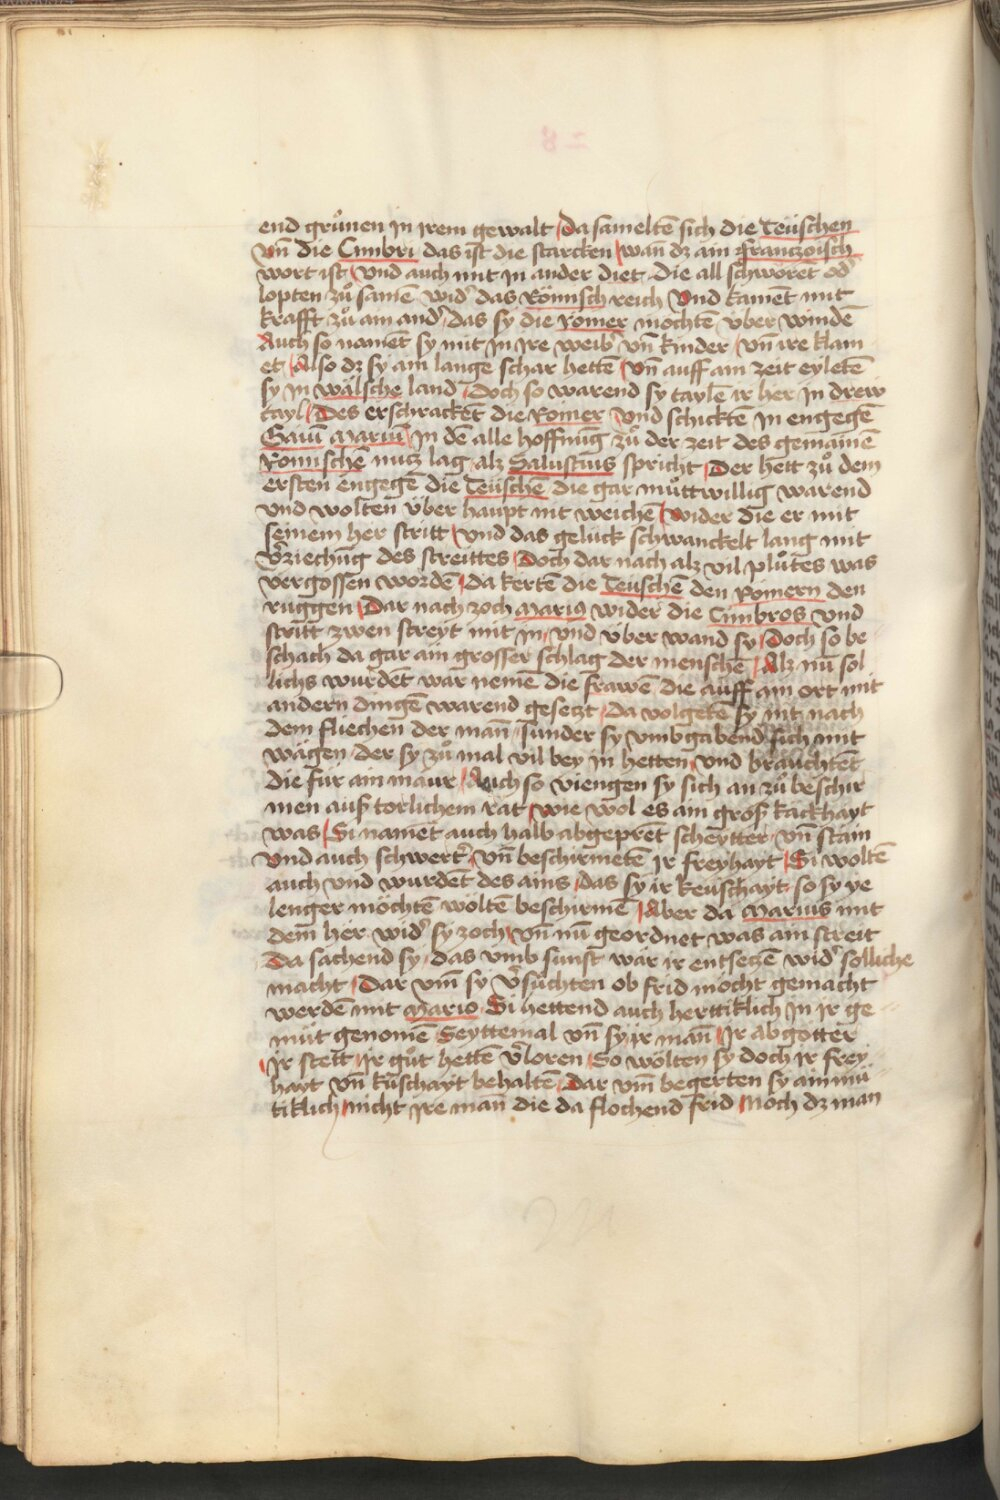 end grůnen in irem gewalt / Da sameltē sich die Teüschen
vn̄ die Cimbri das ist die starcken / wan̄ dz ain frantzoisch
wort ist / vnd auch mit in ander diet / die all schworēt od᷑
lopten zů samē wid᷑ das Römisch reich Vnd kament mit
krafft zů ain and᷑ / das sy die romer mochtē über windē
Auch so namēt sy mit in ire weib᷑ vn̄ kinder / vn̄ ire klain
et / Also dz sy ain lange schar hettē / Vn̄ auff ain zeit eyletē
sy in wälsche land / Doch so warend sy taylē ir her in drew
tayl / Des erschrackēt die Romer Vnd schicktē in engegē
Gaiū Mariū / in dē alle hoffnūg zů der zeit des gemainē
Romischē nutz lag / alz Salustius spricht / Der hett zů dem
ersten engegē die Teüschē die gar můttwillig warend
vnd wolten über haupt nit weichē / wider die er mit
seinem her stritt / Vnd das gelück schwanckelt lang mit
v᷑ziechūg des streittes / Doch dar nach alz vil plůtes was
vergossen wordē / da kertē die Teüschē den Römern den
ruggen / Dar nach zoch Marius wider die Cimbros vnd
stritt zwen streyt mit in / vnd über wand sy / Doch so be
schach da gar ain grosser schlag der menschē / Alz nū sol
lichs wurdēt war nemē die frawē die auff ain ort mit
andern dingē warend gesetzt / da volgetē sy nit nach
dem fliechen der man̄ / sunder sy vmbgabend sich mit
wägen / der sy zů mal vil bey in hetten / vnd brauchtēt
die für ain maur / Auch so viengen sy sich an zů beschir
men auß torlichem rat / wie wol es ain groß käckhayt
was / Si namēt auch halb abgeprēt scheytter / vn̄ stain
Vnd auch schwert᷑ / vn̄ beschirmetē ir freyhayt / Si woltē
auch vnd wurdēt des ains / das sy ir keüschayt so sy ye
lenger möchtē wöltē beschirmē / Aber da Marius mit
dem̄ her wid᷑ sy zoch / vn̄ nū geordnet was ain streit
Da sachend sy / das vmb sunst wär ir entsetzē wid᷑ solliche
macht / Dar vm̄ sy v᷑sůchten ob frid möcht gemacht
werdē mit Mario / Si hettend auch herttiklich in ir ge
můt genomē Seyttemal vn̄ sy ir man̄ / ir abgötter
ir stett / ir gůt hettē v᷑loren / So wöltēn sy doch ir frey
hayt vn̄ küschayt behaltē / Dar vm̄ begerten sy ainmü
tiklich / nicht ire man̄ die da flochend frid / Noch dz man